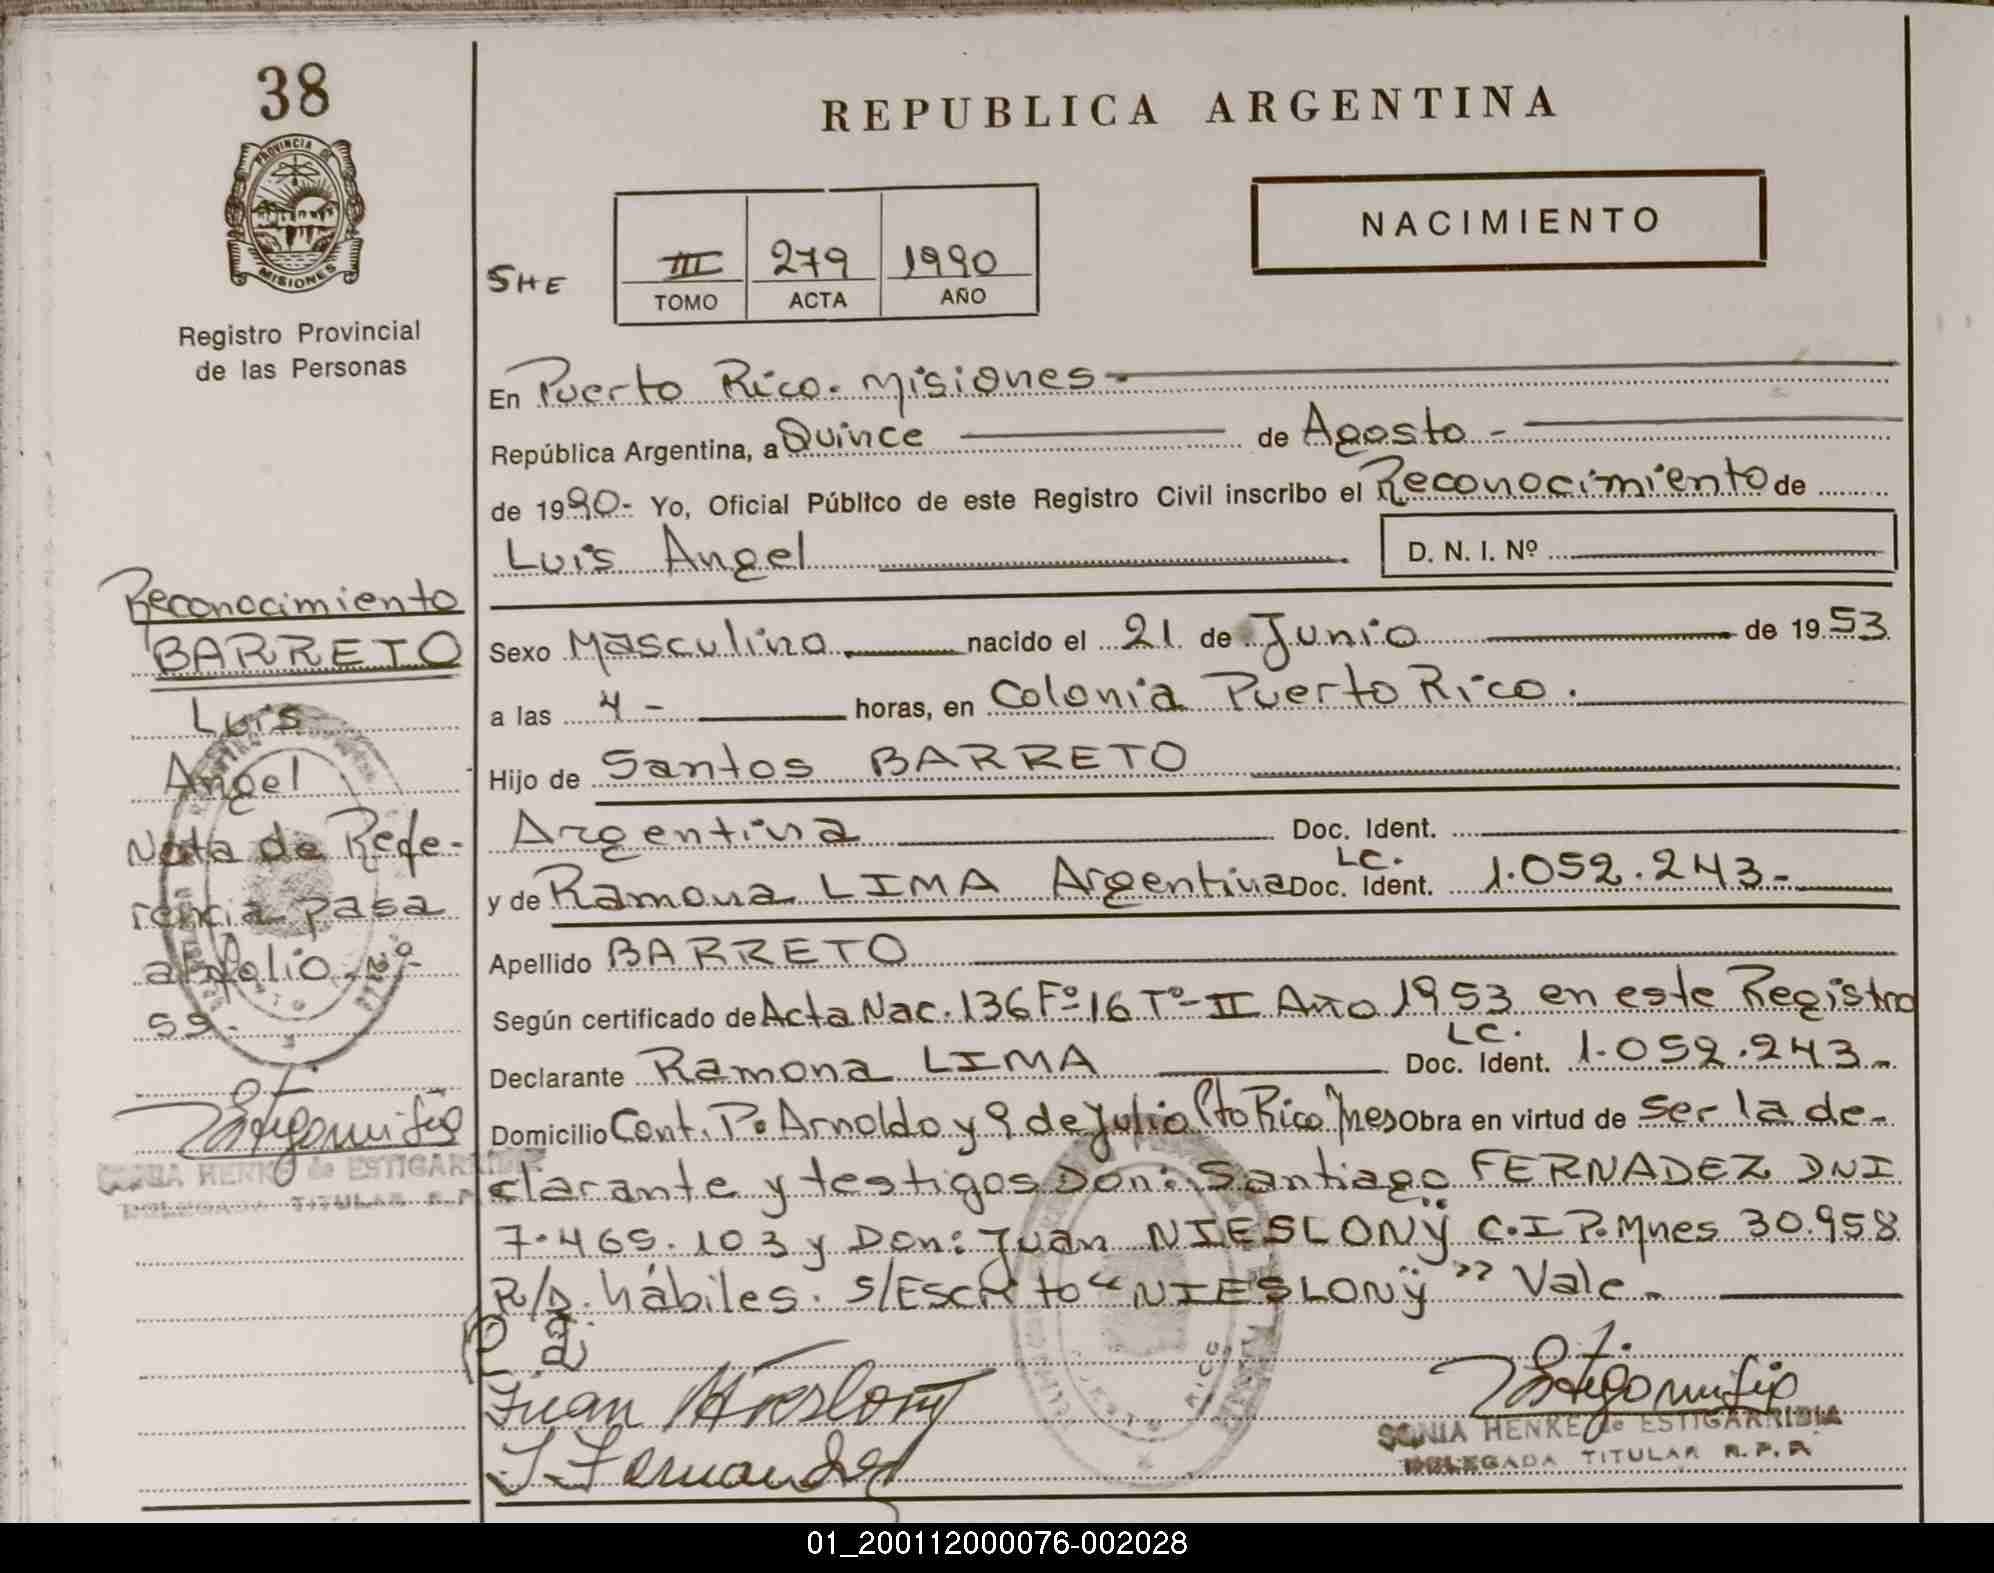 38
PROVINCIA DE
MISIONES
Registro Provincial
de las Personas
REPUBLICA ARGENTINA
NACIMIENTO
SHE
III 279 1990
TOMO ACTA AÑO
En Puerto Rico. Misiones
República Argentina, a Quince de Agosto -
de 1990- Yo, Oficial Público de este Registro Civil inscribo el Reconocimiento de
Luis Angel D. N. I. Nº
Sexo Masculino nacido el 21 de Junio de 1953
a las 4 - horas, en Colonia Puerto Rico.
Hijo de Santos BARRETO
Argentina Doc. Ident.
LC.
y de Ramona LIMA Argentina Doc. Ident. 1.052.243-
Apellido BARRETO
Según certificado de Acta Nac. 136 Fº 16 Tº- II Año 1953 en este Registro
LC.
Declarante Ramona LIMA Doc. Ident. 1.052.243-
Domicilio Cont. P. Arnoldo y 9 de Julio Pto Rico Mnes Obra en virtud de ser la de-
clarante y testigos Don: Santiago FERNADEZ DNI
7.469.103 y Don: Juan NIESLONÿ C.I P. Mnes 30.958
R/D. hábiles. S/Escrito "NIESLONÿ" Vale.
Juan Nieslony
S. Fernandez
SONIA HENKE de ESTIGARRIBIA
DELEGADA TITULAR R. P. P.
Reconocimiento
BARRETO
Luis
Angel
Nota de Refe-
rencia pasa
al folio Nº-
59-
SONIA HENKE de ESTIGARRIBIA
DELEGADA TITULAR R. P.
PUERTO RICO
01_200112000076-002028